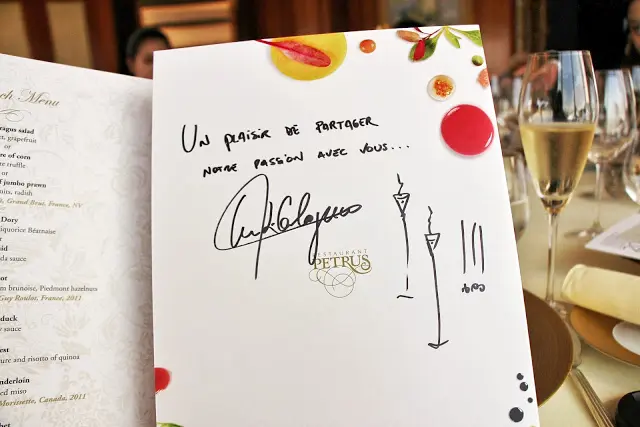 ch Menu
ragus salad
et, grapefruit
or
re of corn
e truffle
or
f jumbo prawn
nuts, radish
, Grand Brut, France, NV
Dory
iquorice Béarnaise
or
id
da sauce
ot
m brunoise, Piedmont hazelnuts
Guy Roulot, France, 2011
duck
y sauce
fest
ture and risotto of quinoa
nderloin
ed miso
Morissette, Canada, 2011
UN PLAISIR DE PARTAGER
NOTRE PASSION AVEC VOUS...
RESTAURANT
PETRUS